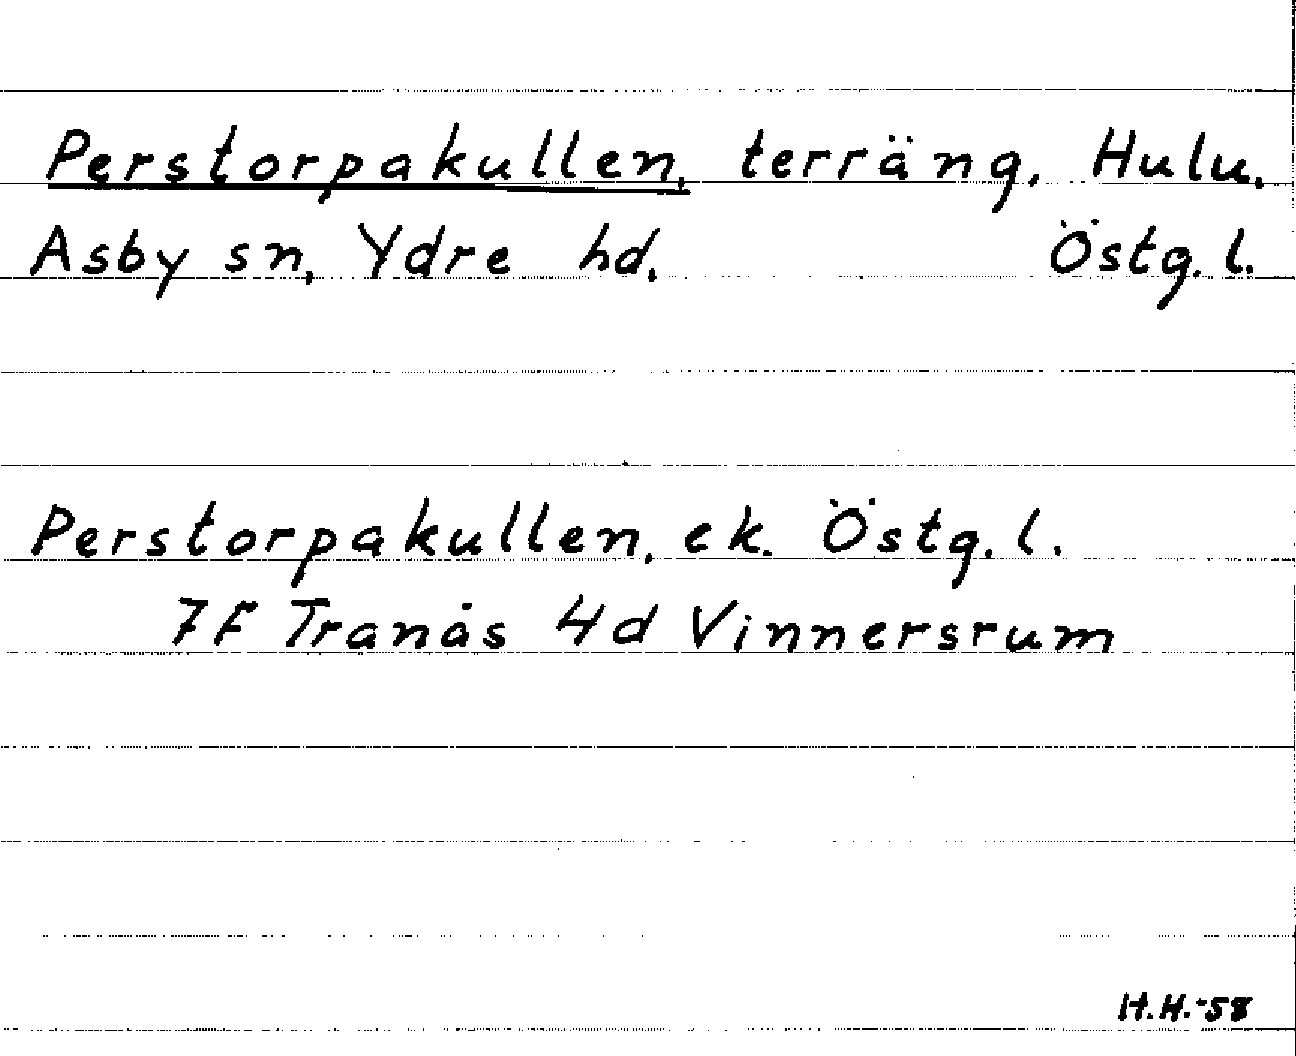 Perstorpakullen, terräng, Hulu,
Asby sn, Ydre hd, Östg. l.
Perstorpakullen, ek. Östg. l.
7F Tranås 4d Vinnersrum
H.H.-58